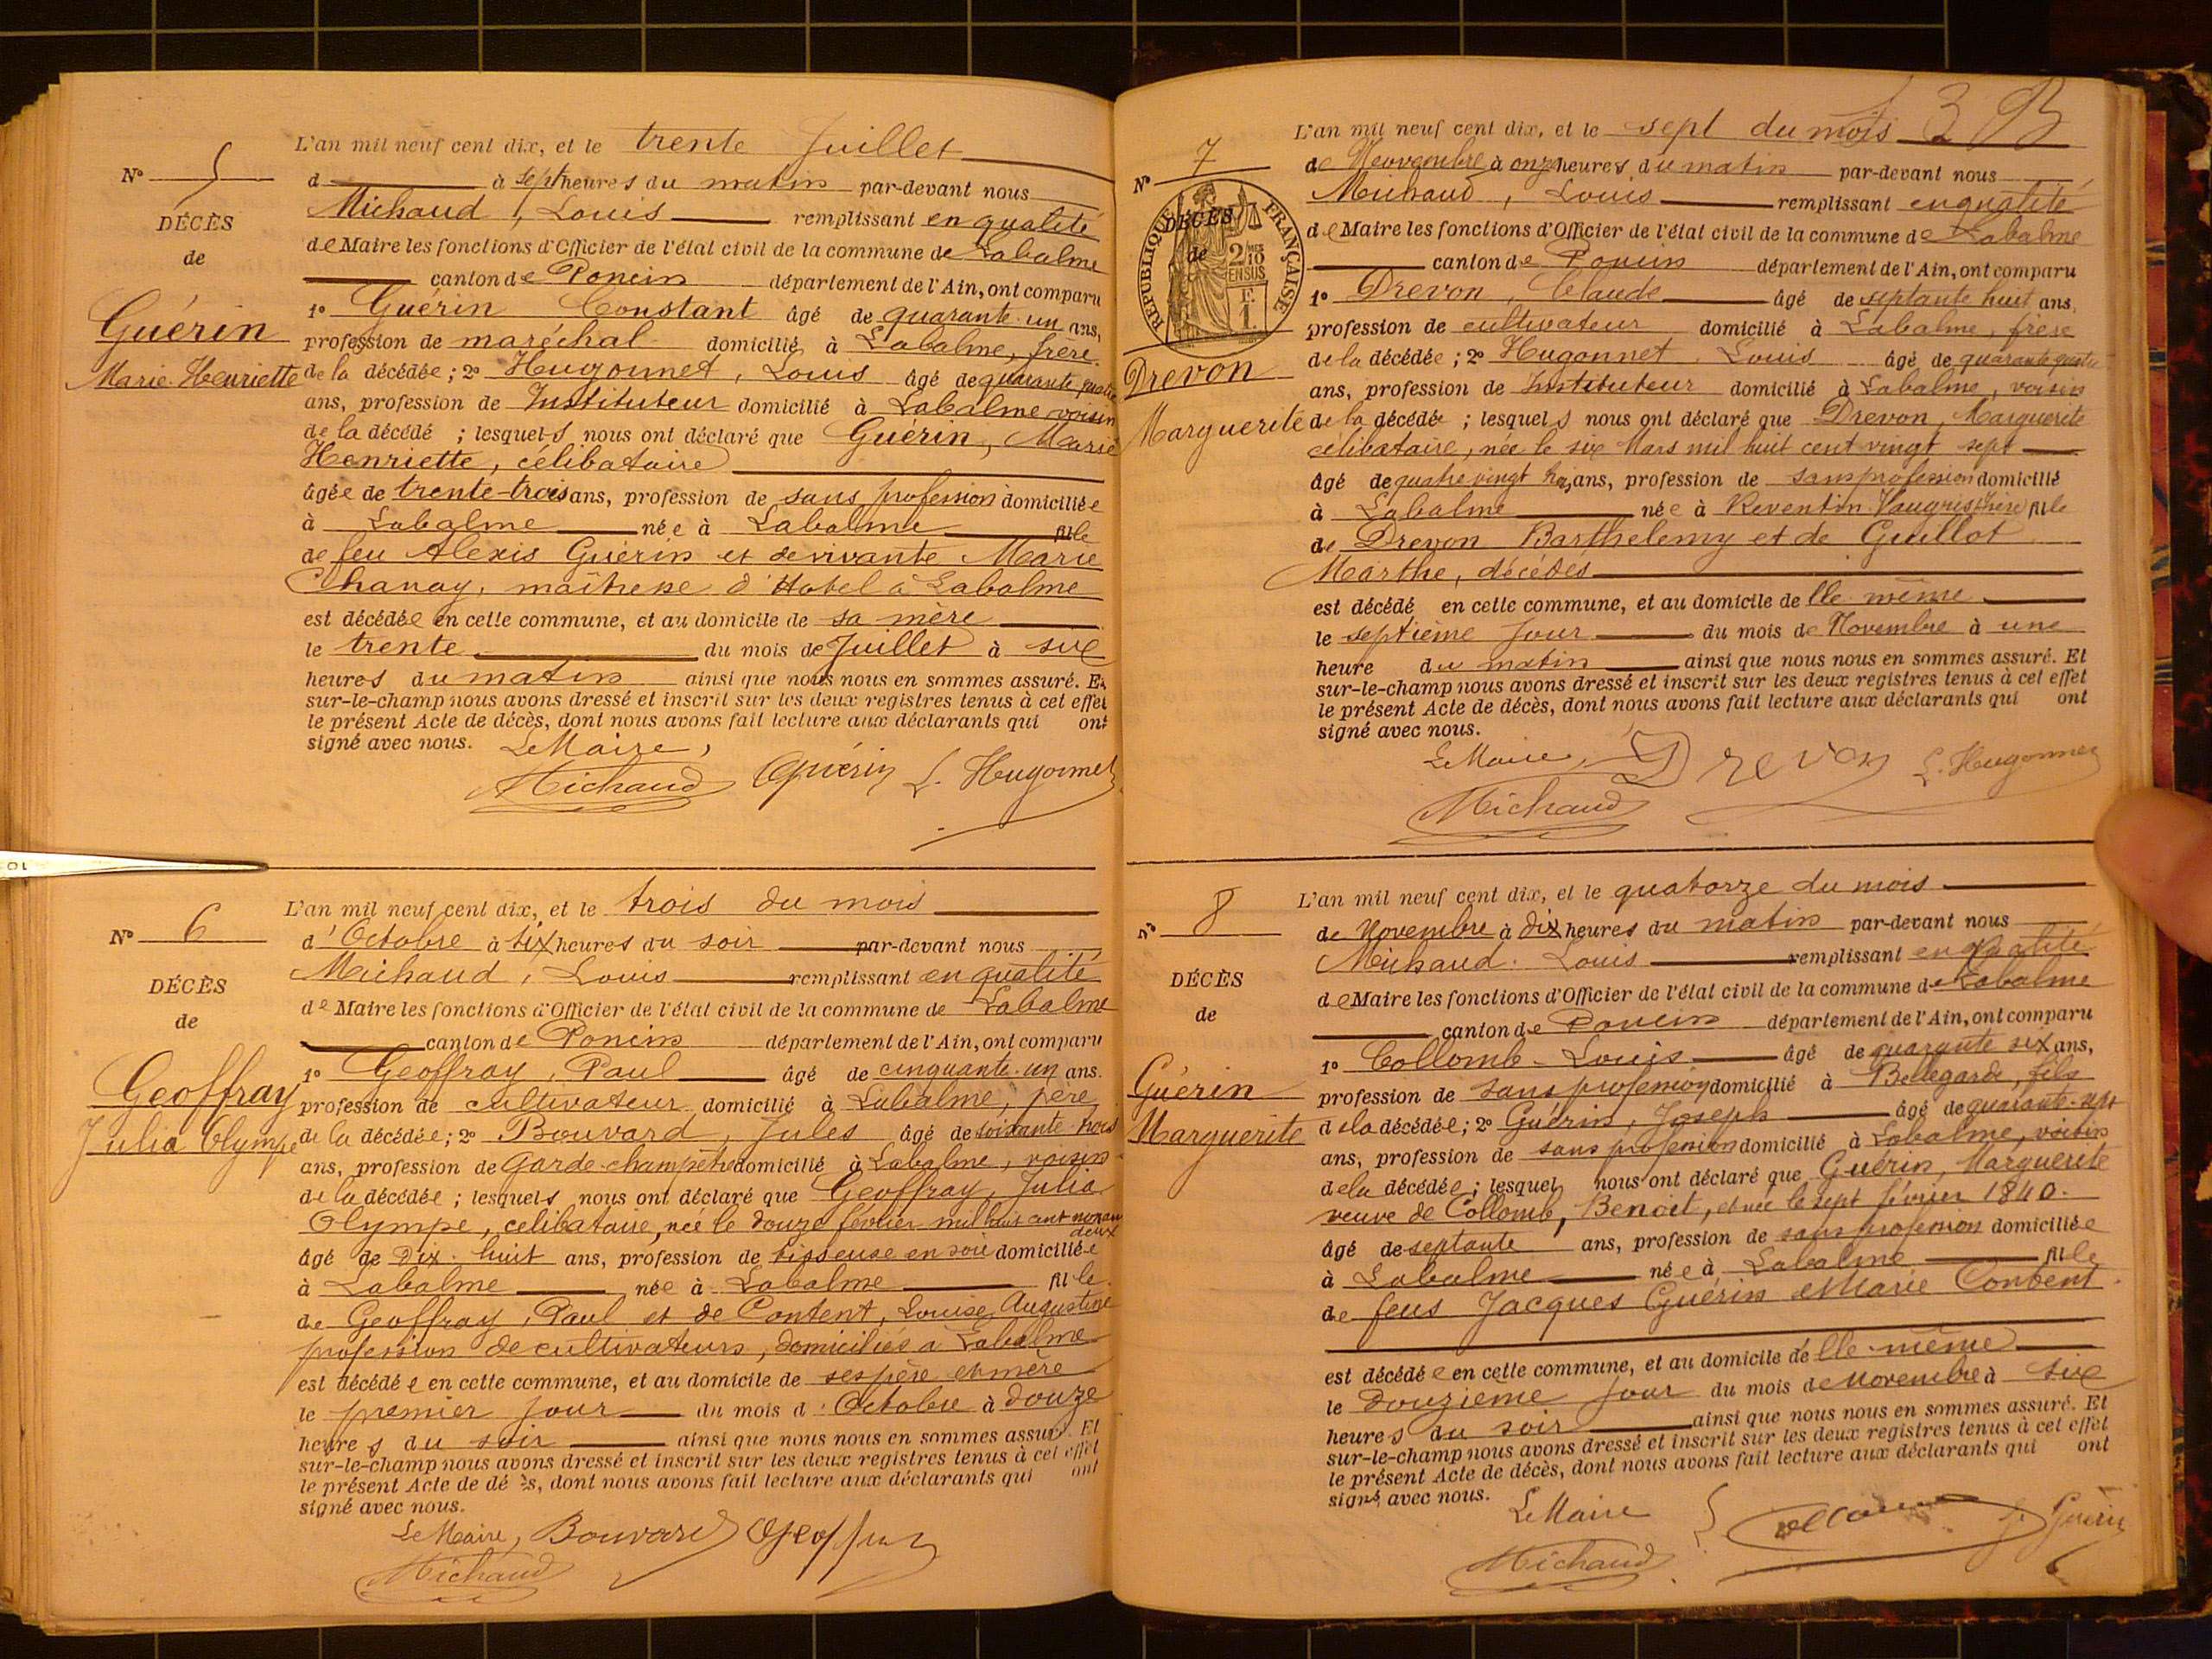 N° 5
DÉCÈS
de
Guérin
Marie-Henriette
L'an mil neuf cent dix, et le trente Juillet
d à sept heures du matin par-devant nous
Michaud, Louis remplissant en qualité
de Maire les fonctions d'Officier de l'état civil de la commune de Labalme
canton de Poncin département de l'Ain, ont comparu
1° Guérin Constant âgé de quarante-un ans,
profession de maréchal domicilié à Labalme, frère
de la décédée ; 2° Hugonnet, Louis âgé de quarante quatre
ans, profession de Instituteur domicilié à Labalme voisin
de la décédé ; lesquels nous ont déclaré que Guérin, Marie
Henriette, célibataire
âgée de trente-trois ans, profession de sans profession domiciliée
à Labalme née à Labalme fille
de feu Alexis Guérin et de vivante Marie
Chanay, maîtresse d'Hotel à Labalme
est décédée en cette commune, et au domicile de sa mère
le trente du mois de Juillet à six
heures du matin ainsi que nous nous en sommes assuré. Et
sur-le-champ nous avons dressé et inscrit sur les deux registres tenus à cet effet
le présent Acte de décès, dont nous avons fait lecture aux déclarants qui ont
signé avec nous. Le Maire,
Michaud Guérin L. Hugonnet
N° 6
DÉCÈS
de
Geoffray
Julia Olympe
L'an mil neuf cent dix, et le trois du mois
d'Octobre à six heures du soir par-devant nous
Michaud, Louis remplissant en qualité
de Maire les fonctions d'Officier de l'état civil de la commune de Labalme
canton de Poncin département de l'Ain, ont comparu
1° Geoffray, Paul âgé de cinquante-un ans.
profession de cultivateur domicilié à Labalme, père
de la décédée ; 2° Bouvard, Jules âgé de soixante-trois
ans, profession de Garde-champêtre domicilié à Labalme, voisin
de la décédée ; lesquels nous ont déclaré que Geoffray, Julia
Olympe, célibataire, née le douze février mil huit cent nonante
deux
âgé de Dix-huit ans, profession de tisseuse en soie domiciliée
à Labalme née à Labalme fille
de Geoffray, Paul et de Content, Louise Augustine
profession de cultivateurs, domiciliés a Labalme
est décédée en cette commune, et au domicile de ses père et mère
le premier jour du mois d'Octobre à douze
heures du soir ainsi que nous nous en sommes assuré. Et
sur-le-champ nous avons dressé et inscrit sur les deux registres tenus à cet effet
le présent Acte de décès, dont nous avons fait lecture aux déclarants qui ont
signé avec nous.
Le Maire, Bouvard
Michaud
3
N° 7
DÉCÈS
de
RÉPUBLIQUE FRANÇAISE
2/10
EN SUS
F.
1.
Drevon
Marguerite
L'an mil neuf cent dix, et le sept du mois
de Novembre à onze heures du matin par-devant nous
Michaud, Louis remplissant en qualité
de Maire les fonctions d'Officier de l'état civil de la commune de Labalme
canton de Poncin département de l'Ain, ont comparu
1° Drevon, Claude âgé de septante huit ans,
profession de cultivateur domicilié à Labalme, frère
de la décédée ; 2° Hugonnet, Louis âgé de quarante quatre
ans, profession de Instituteur domicilié à Labalme, voisin
de la décédée ; lesquels nous ont déclaré que Drevon, Marguerite
célibataire, née le six Mars mil huit cent vingt sept
âgé de quatre vingt trois ans, profession de sans profession domicilié
à Labalme née à Reventin-Vaugris Isère fille
de Drevon Barthelemy et de Guillot
Marthe, décédés
est décédé en cette commune, et au domicile de lle même
le septième jour du mois de Novembre à une
heure du matin ainsi que nous nous en sommes assuré. Et
sur-le-champ nous avons dressé et inscrit sur les deux registres tenus à cet effet
le présent Acte de décès, dont nous avons fait lecture aux déclarants qui ont
signé avec nous.
Le Maire, Drevon L. Hugonnet
Michaud
N° 8
DÉCÈS
de
Guérin
Marguerite
L'an mil neuf cent dix, et le quatorze du mois
de Novembre à dix heures du matin par-devant nous
Michaud. Louis remplissant en qualité
de Maire les fonctions d'Officier de l'état civil de la commune de Labalme
canton de Poncin département de l'Ain, ont comparu
1° Collomb-Louis âgé de quarante six ans,
profession de sans profession domicilié à Bellegarde, fils
de la décédée ; 2° Guérin, Joseph âgé de quarante-sept
ans, profession de sans profession domicilié à Labalme, voisin
de la décédée ; lesquel nous ont déclaré que Guérin, Marguerite
veuve de Collomb, Benoit, et née le sept février 1840.
âgé de septante ans, profession de sans profession domiciliée
à Labalme née à Labalme fille
de feus Jacques Guérin et Marie Content
est décédée en cette commune, et au domicile de lle-même
le Douzième jour du mois de Novembre à six
heures du soir ainsi que nous nous en sommes assuré. Et
sur-le-champ nous avons dressé et inscrit sur les deux registres tenus à cet effet
le présent Acte de décès, dont nous avons fait lecture aux déclarants qui ont
signé avec nous.
Le Maire J. Guérin
Michaud